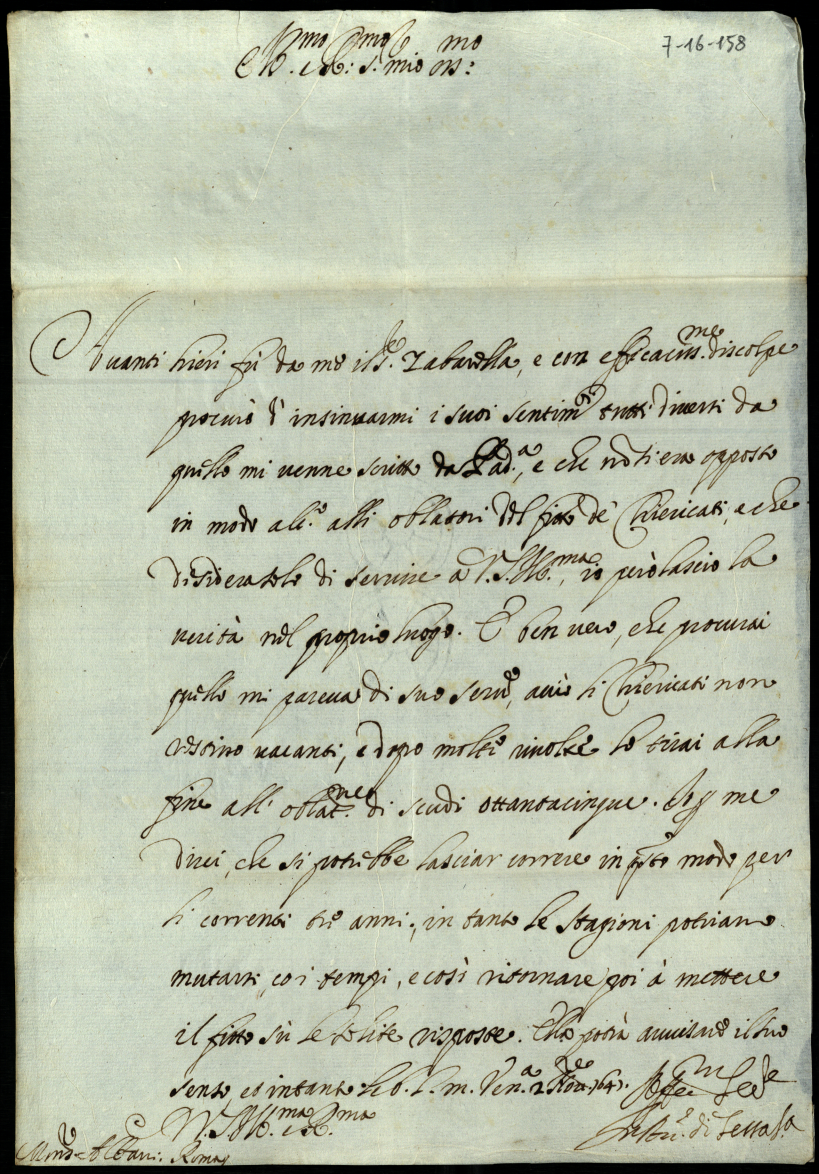 7-16-158
Ill.mo Rmo S. mio oss.mo
Avanti hieri fù da me il S.r Zabarella, e con efficaciss.me discolpe
procurò d' insinuarmi i suoi sentim.ti tutti diversi da
quello mi venne scritto da Pad.a, e che nõ si era opposto
in modo alc.o alli oblatori del fitto de' Chiericati, e che
desidera solo di servire a V.S. Ill.ma, io però lascio la
verità nel proprio luogo. È ben vero, che procurai
quello mi pareva di suo serv.o, acciò li Chiericati non
restino vacanti, e dopo molte rivolte lo tirai alla
fine all' oblat.ne di scudi ottantacinque. Io p me
direi, che si potrebbe lasciar correre in q.sto modo per
li correnti trè anni, in tanto le stagioni potriano
mutarsi, co i tempi, e così ritornare poi à mettere
il fitto sù le solite risposte. Ella potrà avvisare il suo
senso, et intanto le b. l. m. Ven.a 2
V.S. Ill.ma e R.ma
di
Mons.r Albani. Roma